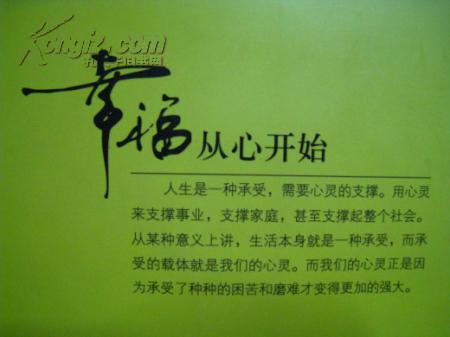 Kongfz.com
孔夫子旧书网
幸福从心开始
人生是一种承受，需要心灵的支撑。用心灵
来支撑事业，支撑家庭，甚至支撑起整个社会。
从某种意义上讲，生活本身就是一种承受，而承
受的载体就是我们的心灵。而我们的心灵正是因
为承受了种种的困苦和磨难才变得更加的强大。